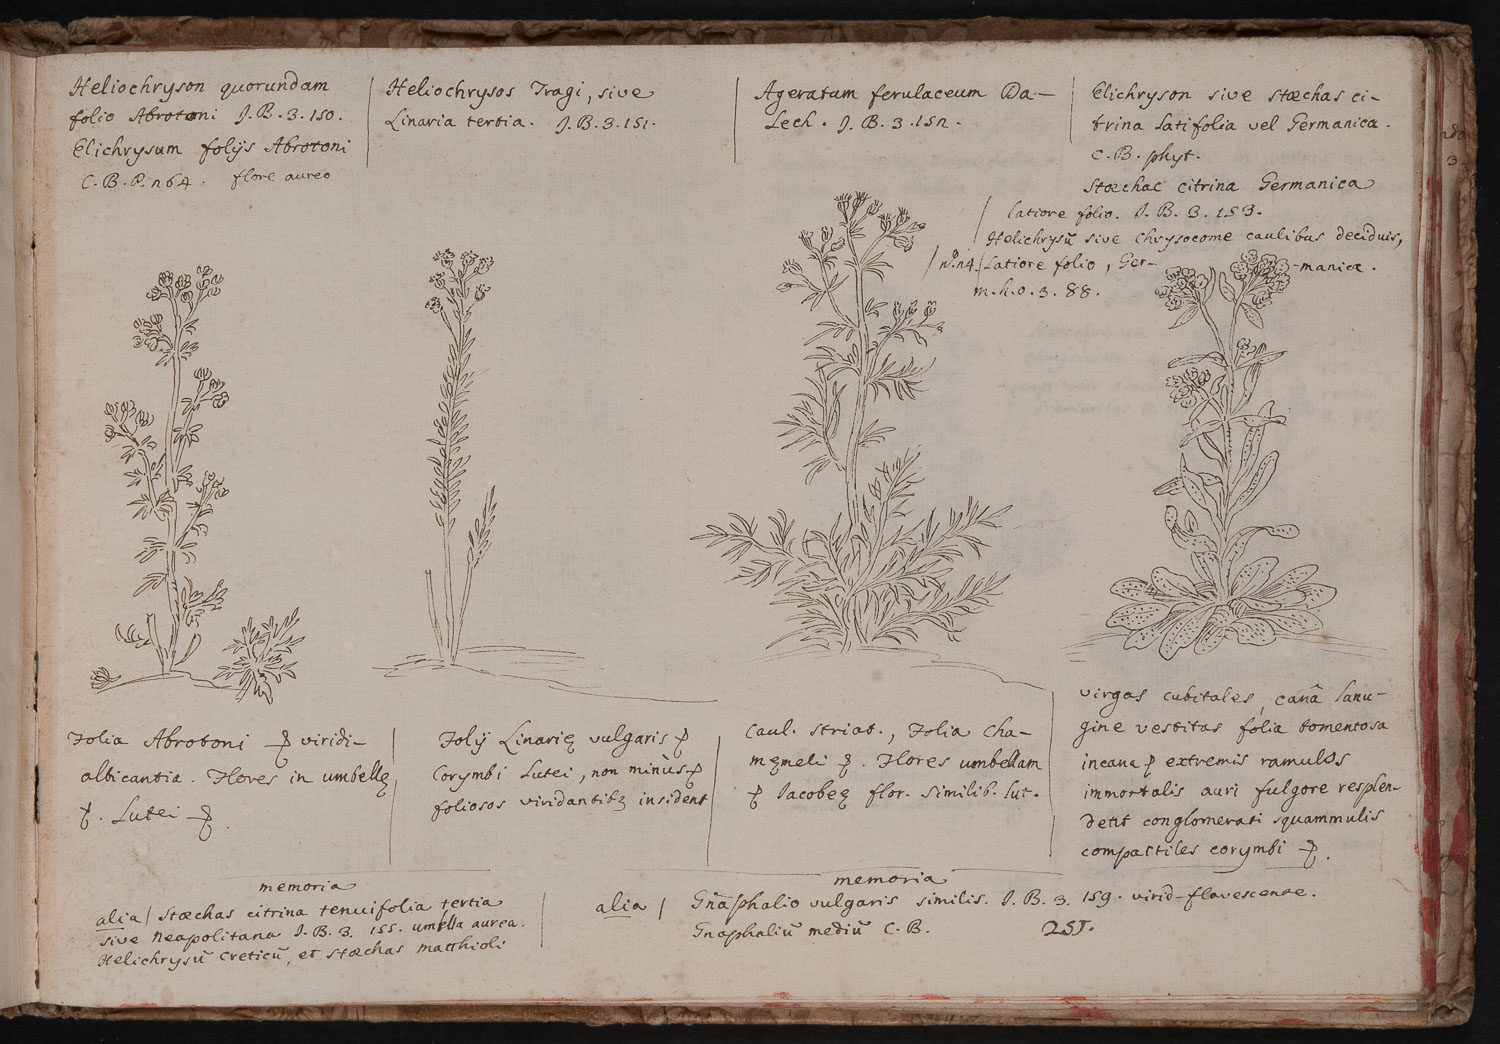 Heliochryson quorundam
folio Abrotoni J. B. 3. 150.
Elichrysum folijs Abrotoni
C. B. P. n64. flore aureo
Heliochrysos Tragi, sive
Linaria tertia. J. B. 3. 151.
Ageratum ferulaceum Da-
Lech. J. B. 3. 152.
Elichryson sive stœchas ci-
trina latifolia vel Germanica.
C. B. phyt.
Stœchac citrina Germanica
latiore folio. J. B. 3. 153.
Helichrysū sive chrysocome caulibus deciduis,
n.º n4. Latiore folio, Ger- -manicæ.
m. h. o. 3. 88.
Folia Abrotoni & viridi-
albicantia. Flores in umbellę
&. Lutei &.
Folij Linarię vulgaris &
Corymbi Lutei, non minùs &
foliosos viridantibȝ insident
Caul. striat., Folia Cha-
męmeli &. Flores umbellam
& Iacobeę flor. similib. lut.
virgas cubitales, canâ lanu-
gine vestitas folia tomentosa
incana & extremis ramulos
immortalis auri fulgore resplen-
detit conglomerati squammulis
compactiles corymbi &.
memoria
alia / Stœchas citrina tenuifolia tertia
sive Neapolitana J. B. 3. 155. umella aurea.
Helichrysū Creticū, et stœchas matthioli
memoria
alia / Gnaphalio vulgaris similis. J. B. 3. 159. virid-flavescente.
Gnaphaliū mediū C. B. 251.